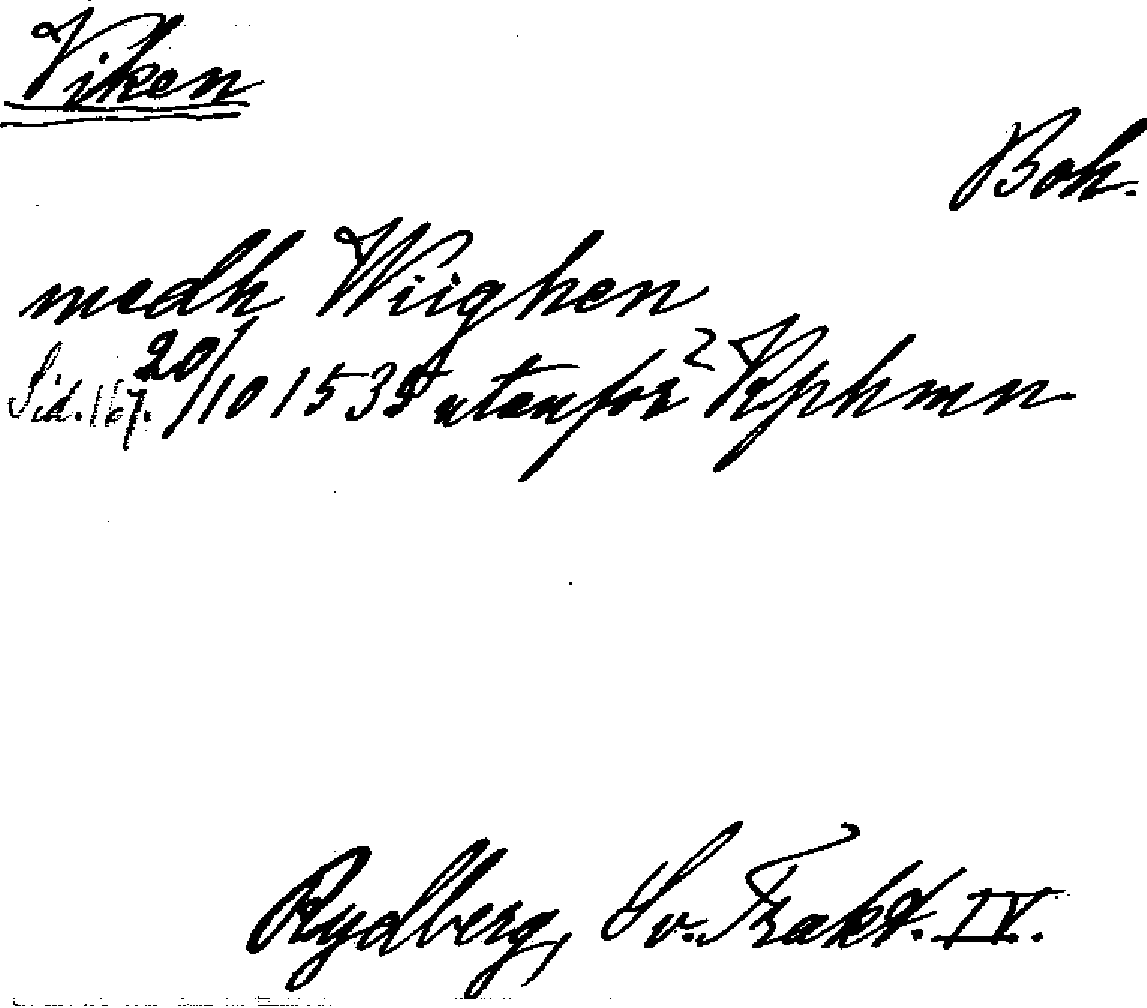 Viken
Boh.
medh Wiighen
Sid. 167. 20/10 1535 utanför Kphmn
Rydberg, Sv. Trakt. IV.